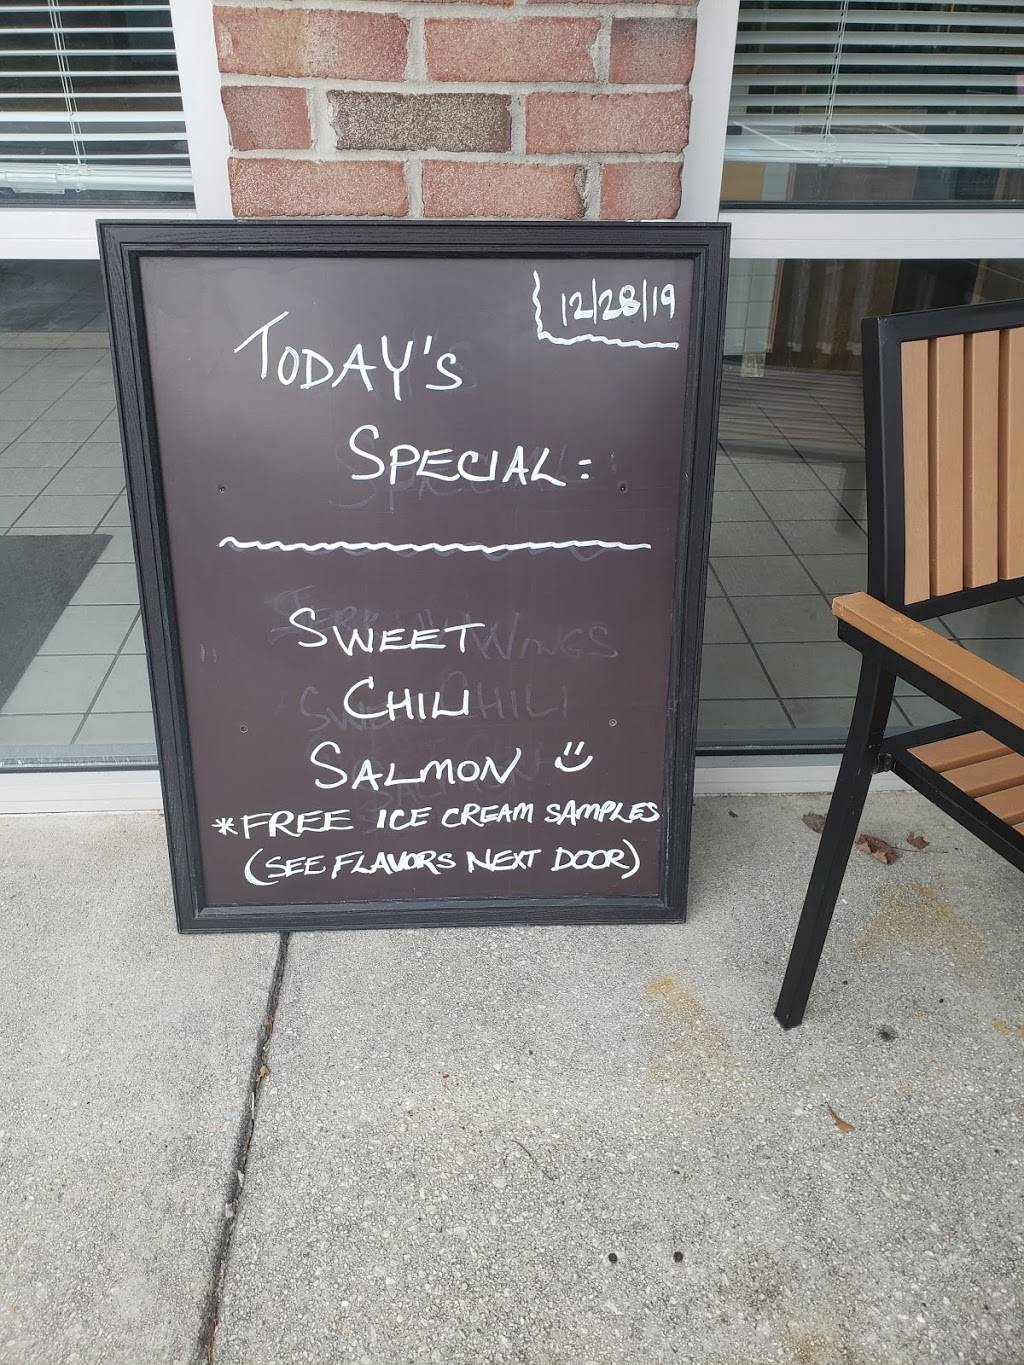 12/28/19
TODAY'S
SPECIAL:
SWEET
CHILI
SALMON
*FREE ICE CREAM SAMPLES
(SEE FLAVORS NEXT DOOR)